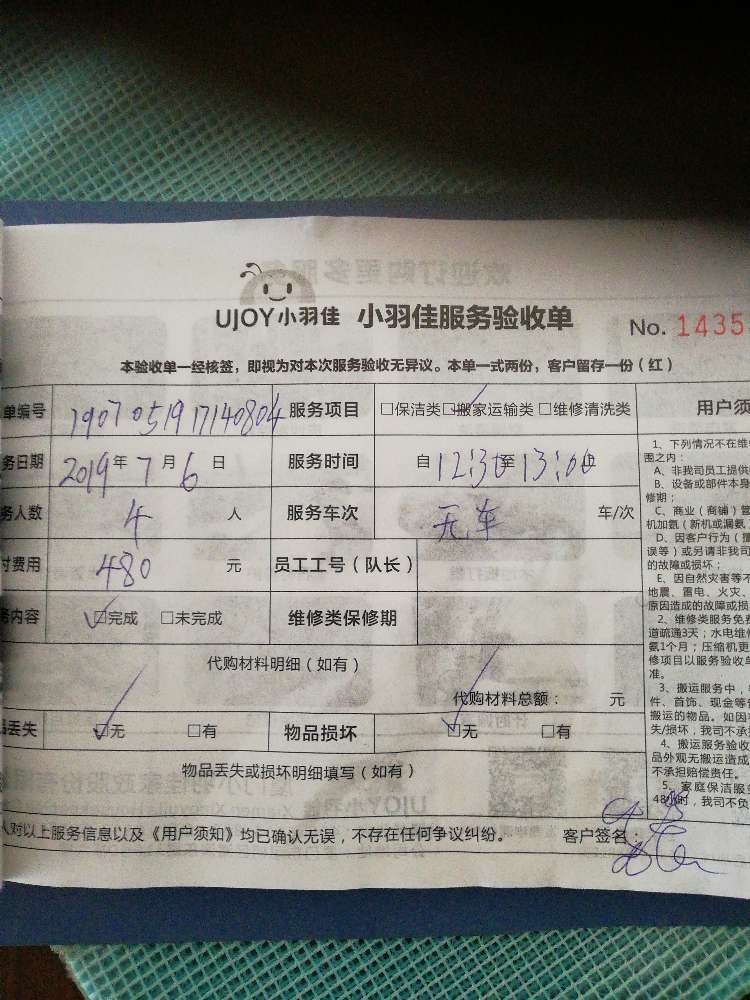 UJOY小羽佳 小羽佳服务验收单 No. 1435
本验收单一经核签，即视为对本次服务验收无异议。本单一式两份，客户留存一份（红）
单编号 1907051917140804 服务项目 □保洁类 ☑搬家运输类 □维修清洗类 用户须
务日期 2019年7月6日 服务时间 自12:30至13:00止
务人数 4 人 服务车次 无车 车/次
付费用 480 元 员工工号（队长）
务内容 ☑完成 □未完成 维修类保修期
代购材料明细（如有）
代购材料总额： 元
品丢失 ☑无 □有 物品损坏 ☑无 □有
物品丢失或损坏明细填写（如有）
人对以上服务信息以及《用户须知》均已确认无误，不存在任何争议纠纷。 客户签名：
1、下列情况不在维
围之内：
A、非我司员工提供
B、设备或部件本身
修期；
C、商业（商铺）管
机加氨（新机或漏氨
D、因客户行为（擅
误等）或另请非我司
的故障或损坏；
E、因自然灾害等不
地震、雷电、火灾、
原因造成的故障或损
2、维修类服务免费
道疏通3天；水电维修
氨1个月；压缩机更
修项目以服务验收单
准。
3、搬运服务中，
件、首饰、现金等
搬运的物品。如因
失/损坏，我司不承
4、搬运服务验收
品外观无搬运造成
不承担赔偿责任。
5、家庭保洁服
48小时，我司不负